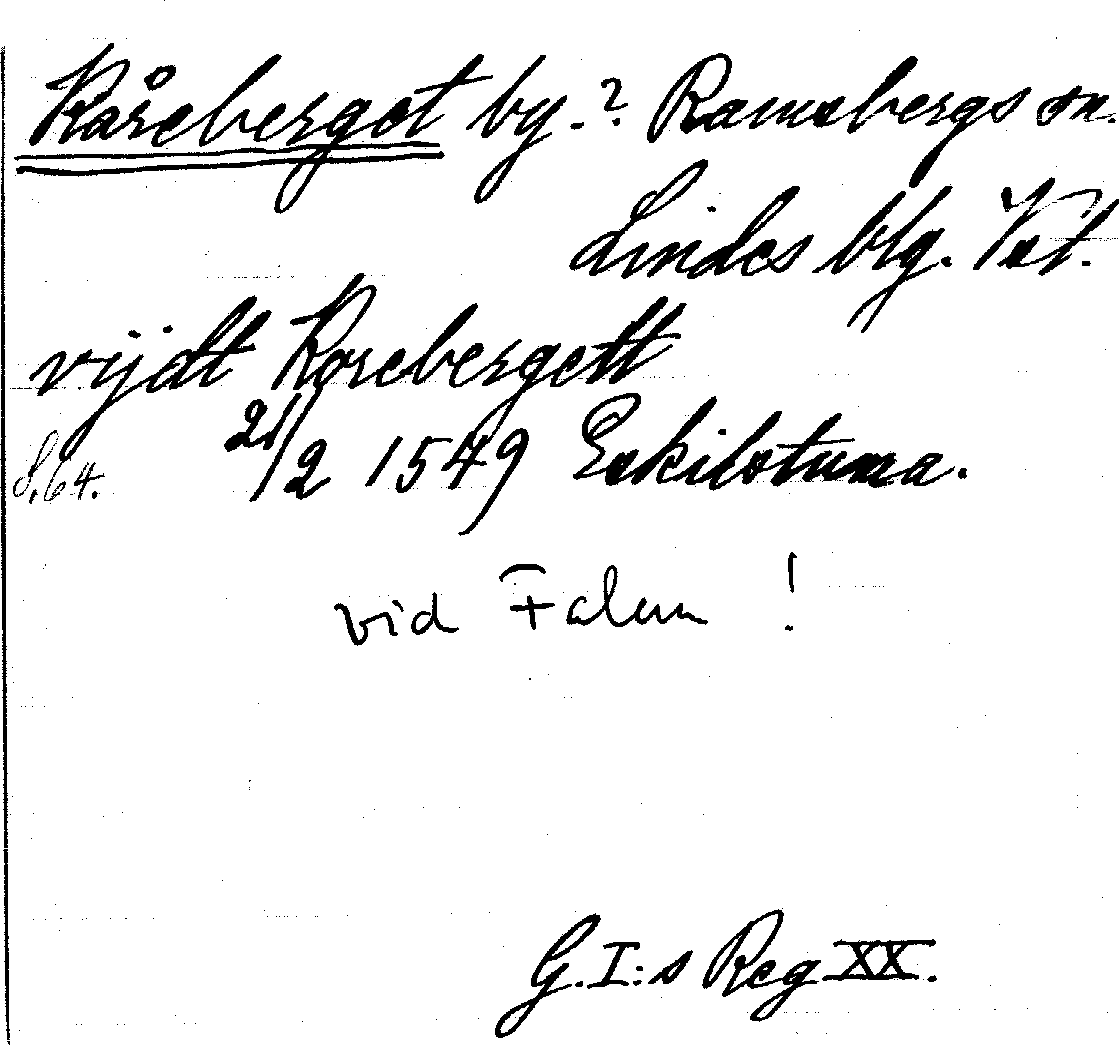 Kåreberget by.? Ramsbergs sn.
Lindes blg. Vstl.
vijdt Korebergett
S.64. 21/2 1549 Eskilstuna.
vid Falun !
G.I:s Reg XX.